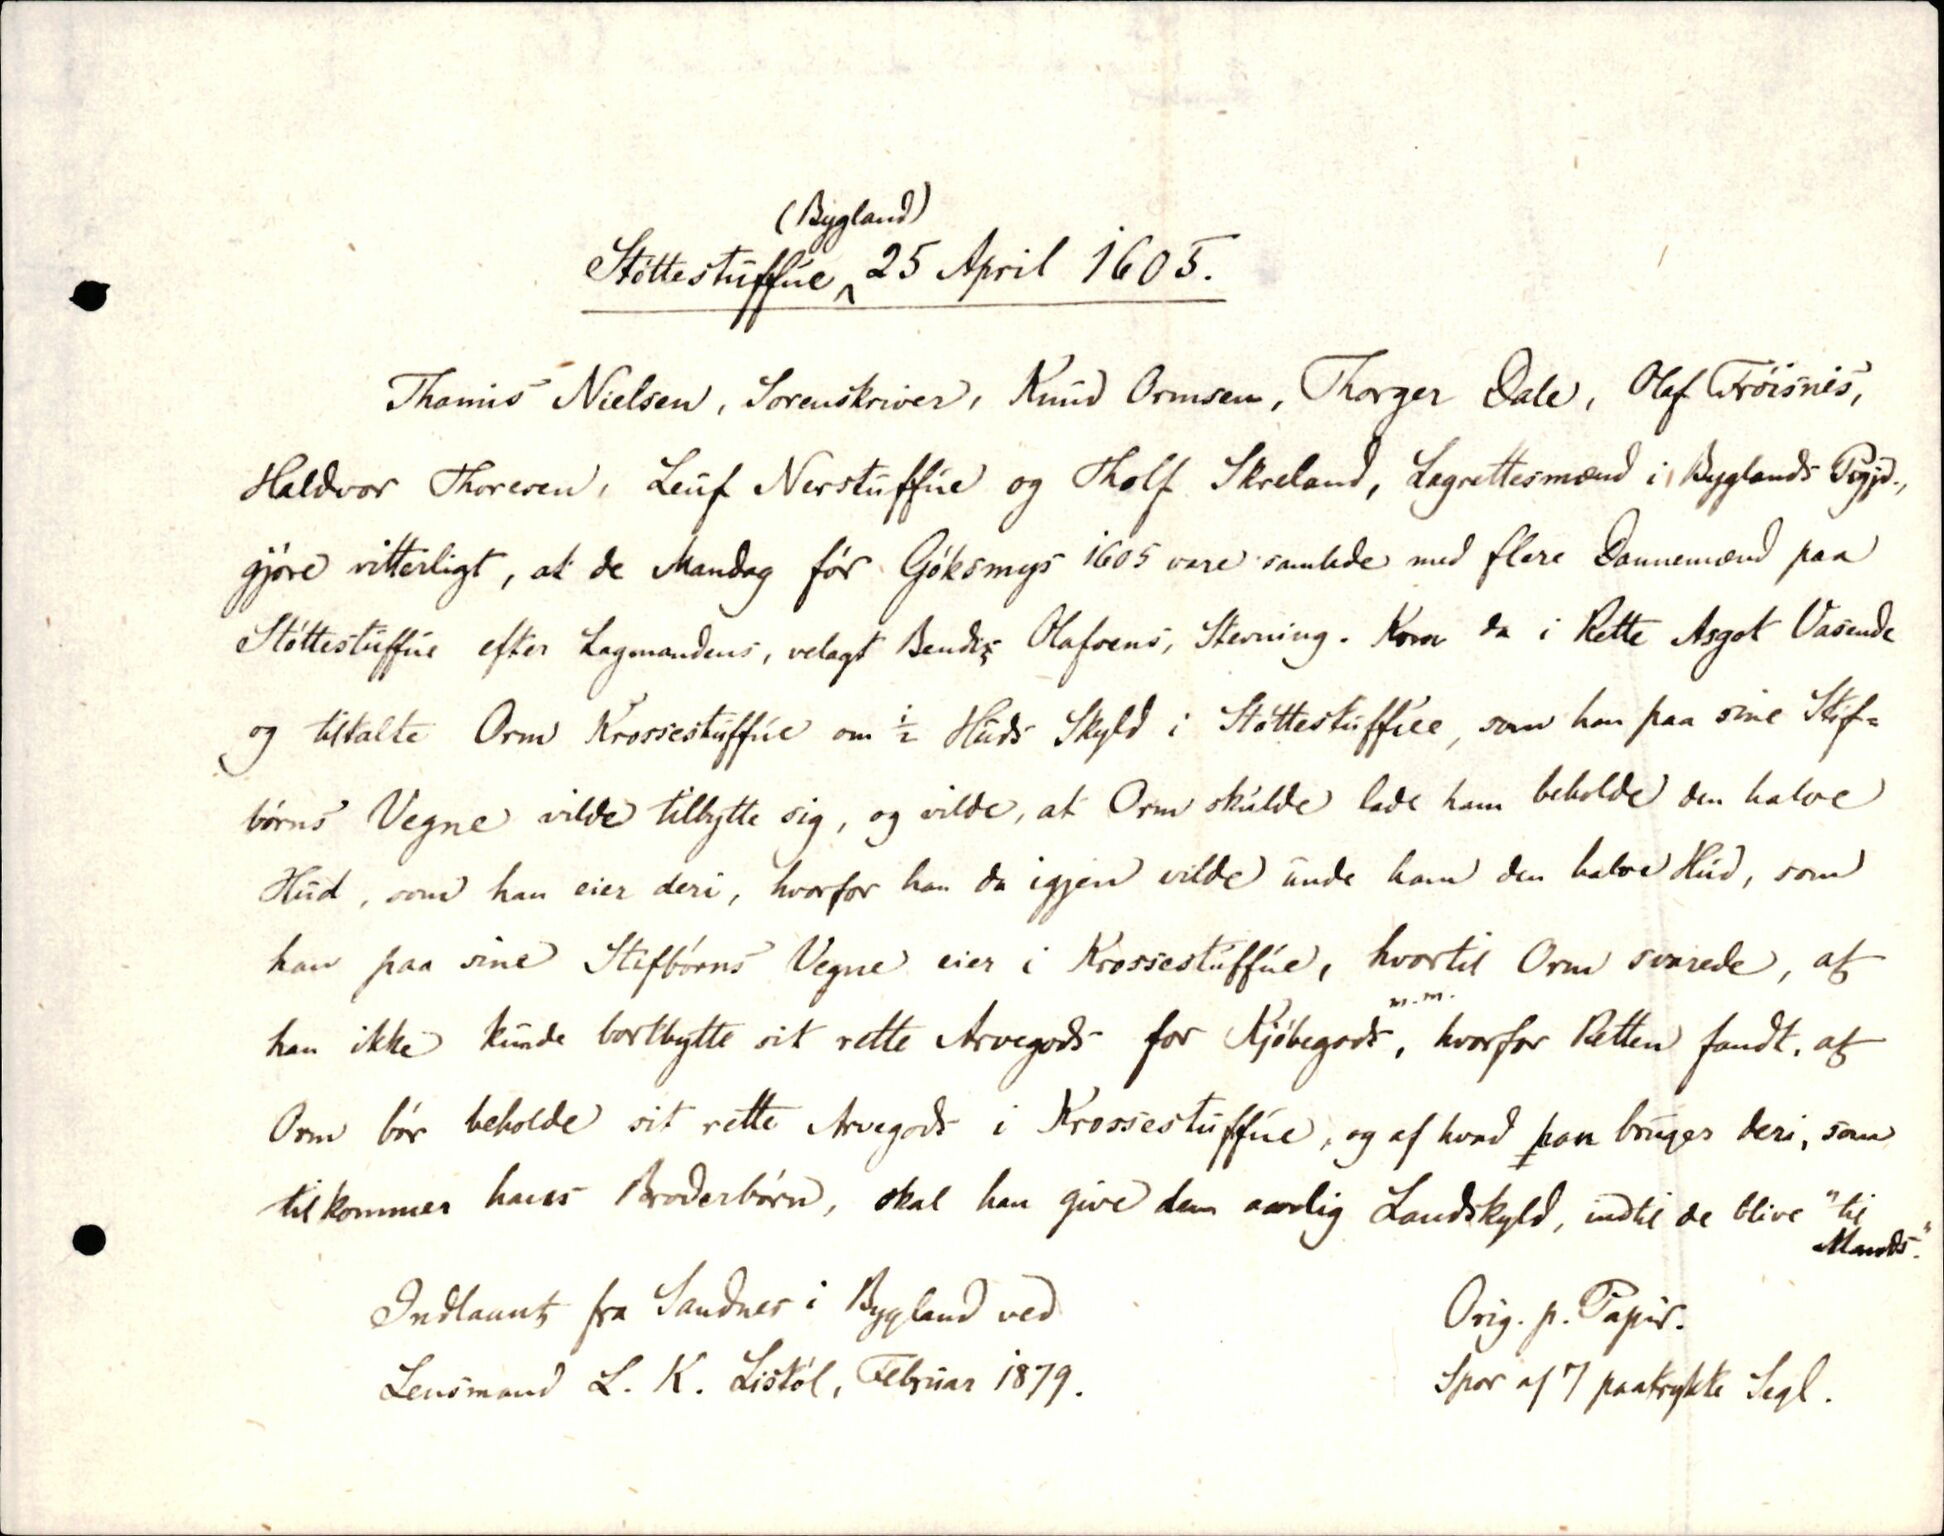 (Bygland)
Støttestuffue 25 April 1605.
Thamis Nielsen, Sorenskriver, Knud Ormsen, Thorger Dale, Olaf Frøisnes,
Haldvor Thoresen, Leuf Nerstuffue og Tholf Skreland, Lagrettesmænd i Byglands Pgjd.,
gjøre vitterligt, at de Mandag før Gøksmys 1605 vare samlede med flere Dannemænd paa
Støttestuffue efter Lagmandens, velagt Bendix Olafsens, Stevning. Kom da i Rette Asgot Vasende
og tiltalte Orm Krossestuffue om ½ Huds Skyld i Støttestuffue, som han paa sine Stif-
børns Vegne vilde tilbytte sig, og vilde, at Orm skulde lade ham beholde den halve
Hud, som han eier deri, hvorfor han da igjen vilde unde ham den halve Hud, som
han paa sine Stifbørns Vegne eier i Krossestuffue, hvortil Orm svarede, at
han ikke kunde bortbytte sit rette Arvegods for Kjøbegods, m.m. hvorfor Retten fandt, at
Orm bør beholde sit rette Arvegods i Krossestuffue, og af hvad han bruger deri, som
tilkommer hans Broderbørn, skal han give dem aarlig Landskyld, indtil de blive "til
Mands".
Indlaant fra Sandnes i Bygland ved
Lensmand L. K. Liskøl, Februar 1879.
Orig. p. Papir.
Spor af 7 paatrykte Segl.